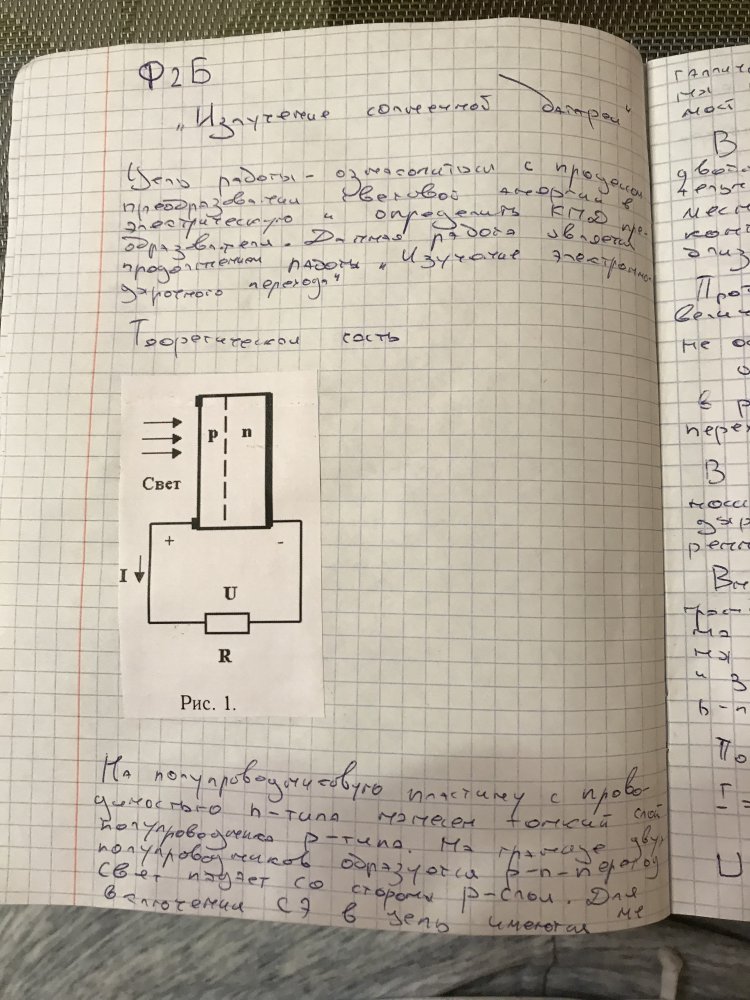 Ф2Б
„Излучение солнечной батареи"
Цель работы - ознакомиться с процессом
преобразования световой энергии в
электрическую и определить КПД пре-
образователя. Данная работа является
продолжением работы „Изучение электронно-
дырочного перехода"
Теоретическая часть
p n
Свет
+ -
I
U
R
Рис. 1.
На полупроводниковую пластину с прово-
димостью n-типа нанесен тонкий слой
полупроводника p-типа. На границе двух
полупроводников образуется p-n-переход
Свет падает со стороны p-слоя. Для
включения СЭ в цепь имеются ме
В
не
о
в р
В
По
I
U